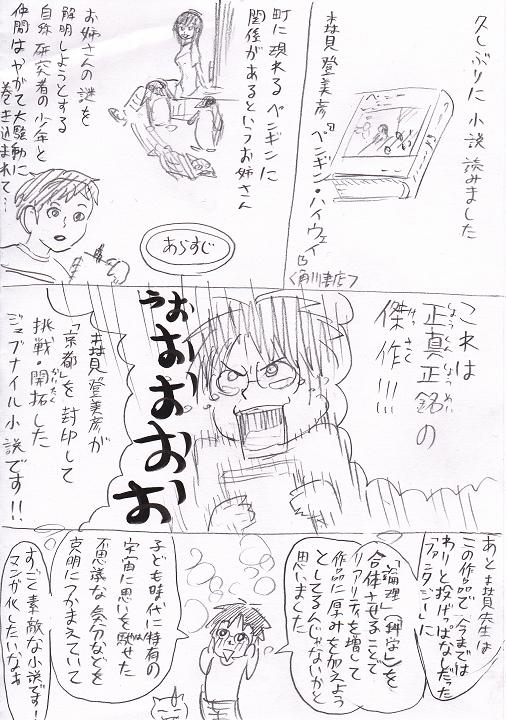 久しぶりに小説読みました
森見登美彦『ペンギン・ハイウェイ』
<角川書店>
町に現れるペンギンに
関係があるというお姉さん
お姉さんの謎を
解明しようとする
自称研究者の少年と
仲間はやがて大騒動に
巻き込まれて…
あらすじ
これは
正真正銘の
しょうしんしょうめい
傑作!!!
けっさく
うぉおおおお
森見登美彦が
「京都」を封印して
挑戦・開拓した
かいたく
ジュブナイル小説です!!
あと森見先生は
この作品で今までは
わりと投げっぱなしだった
「ファンタジー」に
「論理」(科学)を
合体させることで
リアリティを増して
作品に厚みを加えよう
としてるんじゃないかと
思いました
子ども時代に特有の
宇宙に思いを馳せた
不思議な気分などを
克明につかまえていて
すっごく素敵な小説です!
マンガ化したいなぁ